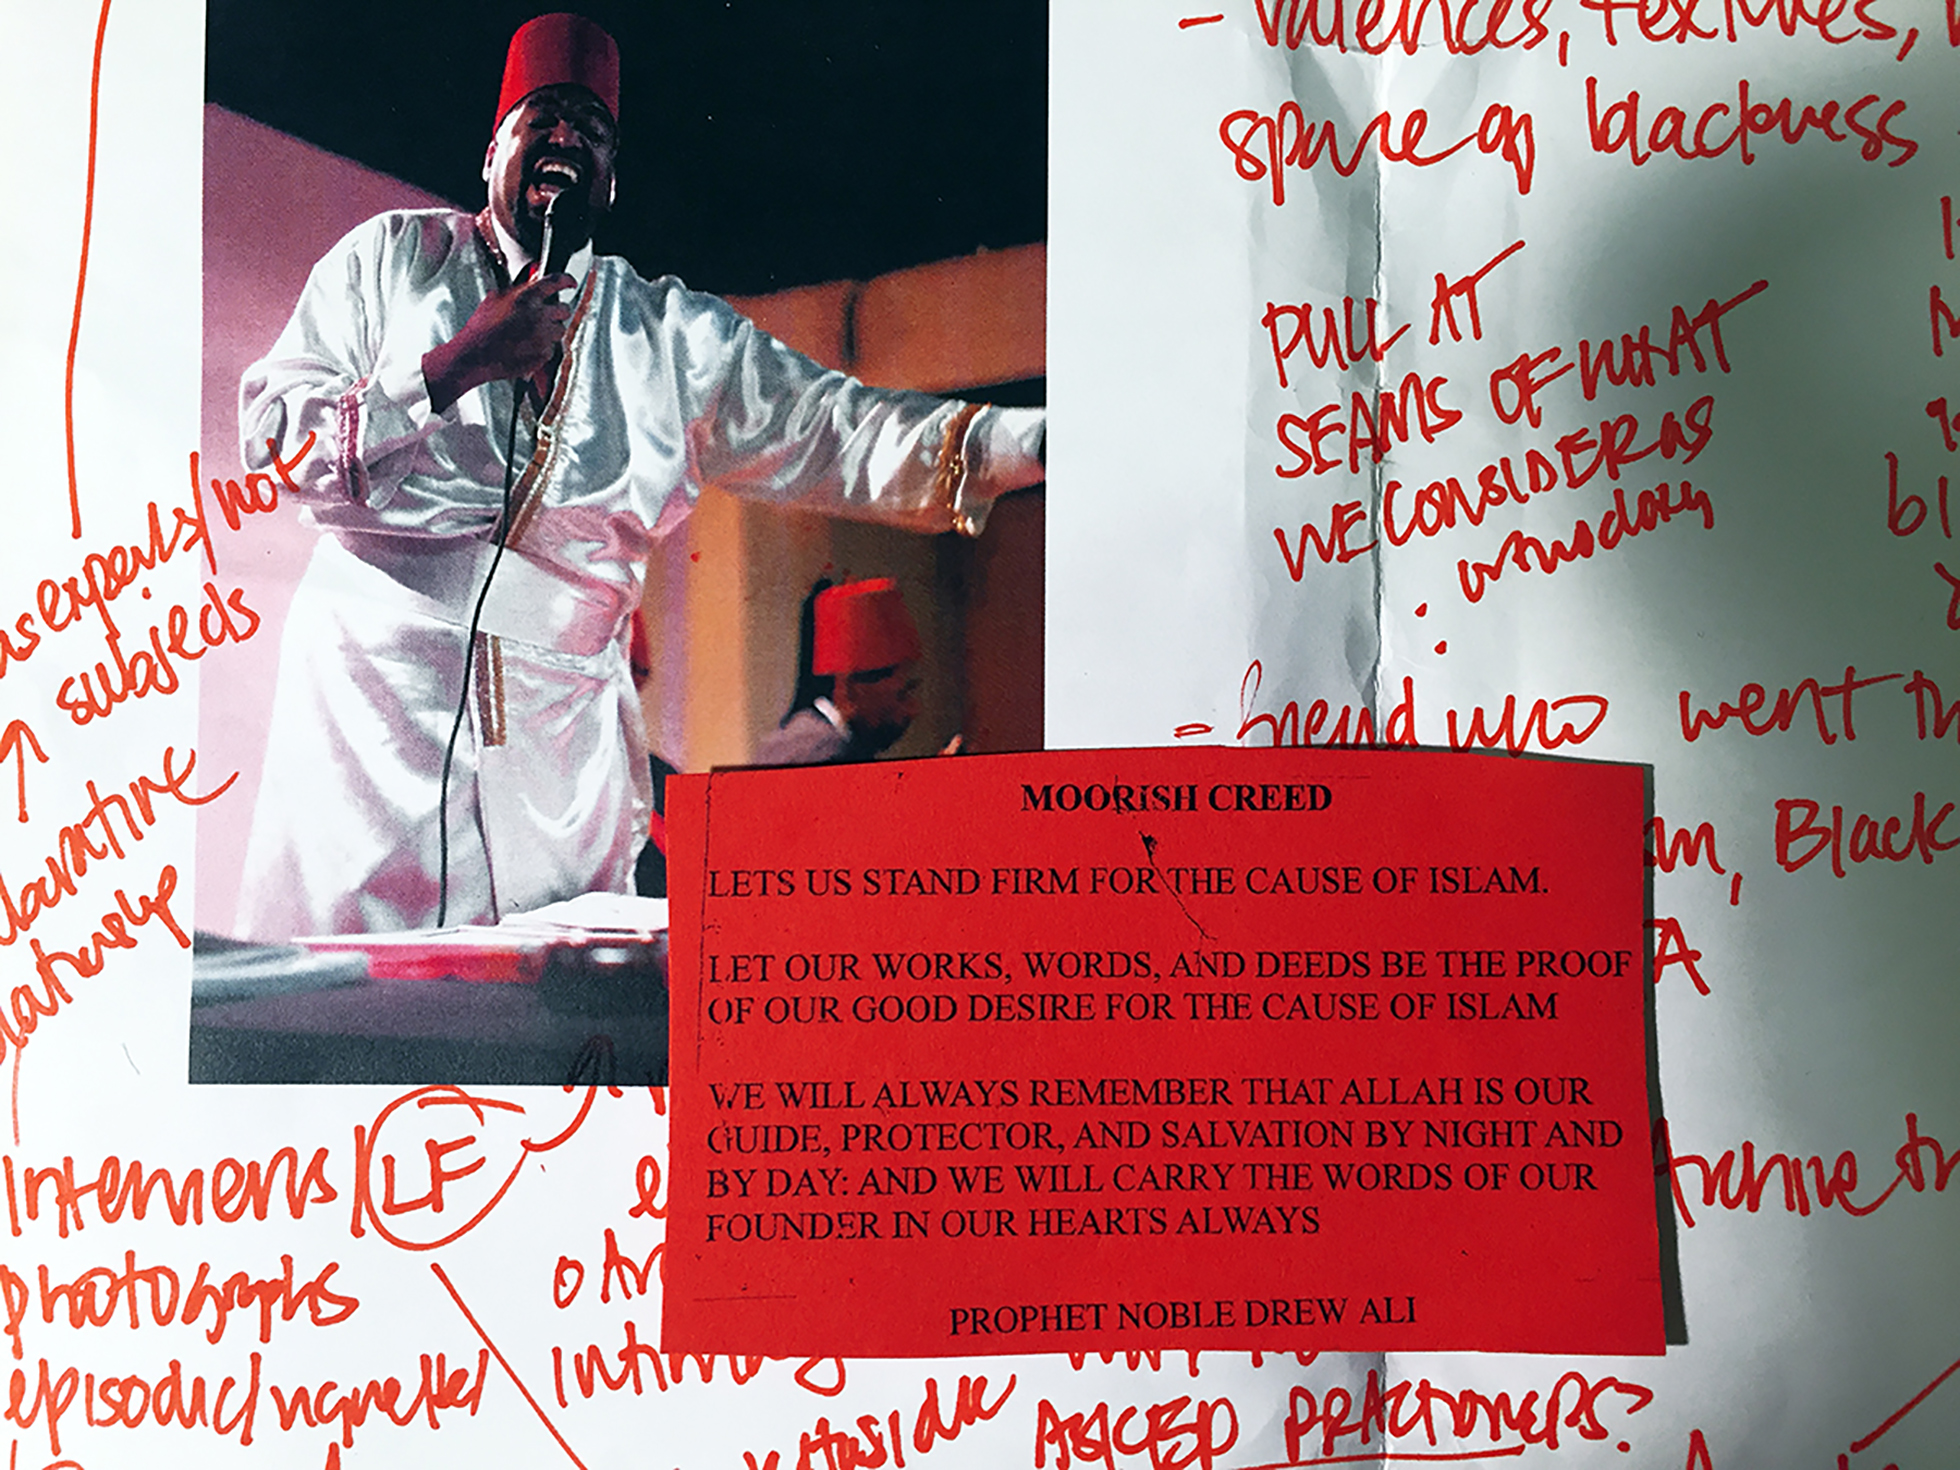 - valences, textures,
space of blackness
PULL AT
SEAMS OF WHAT
WE CONSIDER as
as experts/not
subjects
- friend who went th
relationship
MOORISH CREED
LETS US STAND FIRM FOR THE CAUSE OF ISLAM.
LET OUR WORKS, WORDS, AND DEEDS BE THE PROOF
OF OUR GOOD DESIRE FOR THE CAUSE OF ISLAM
WE WILL ALWAYS REMEMBER THAT ALLAH IS OUR
GUIDE, PROTECTOR, AND SALVATION BY NIGHT AND
BY DAY: AND WE WILL CARRY THE WORDS OF OUR
FOUNDER IN OUR HEARTS ALWAYS
PROPHET NOBLE DREW ALI
Black
A
Interviews/LF
photographs
episodic/vignettes/
Archive
PRACTIONERS?